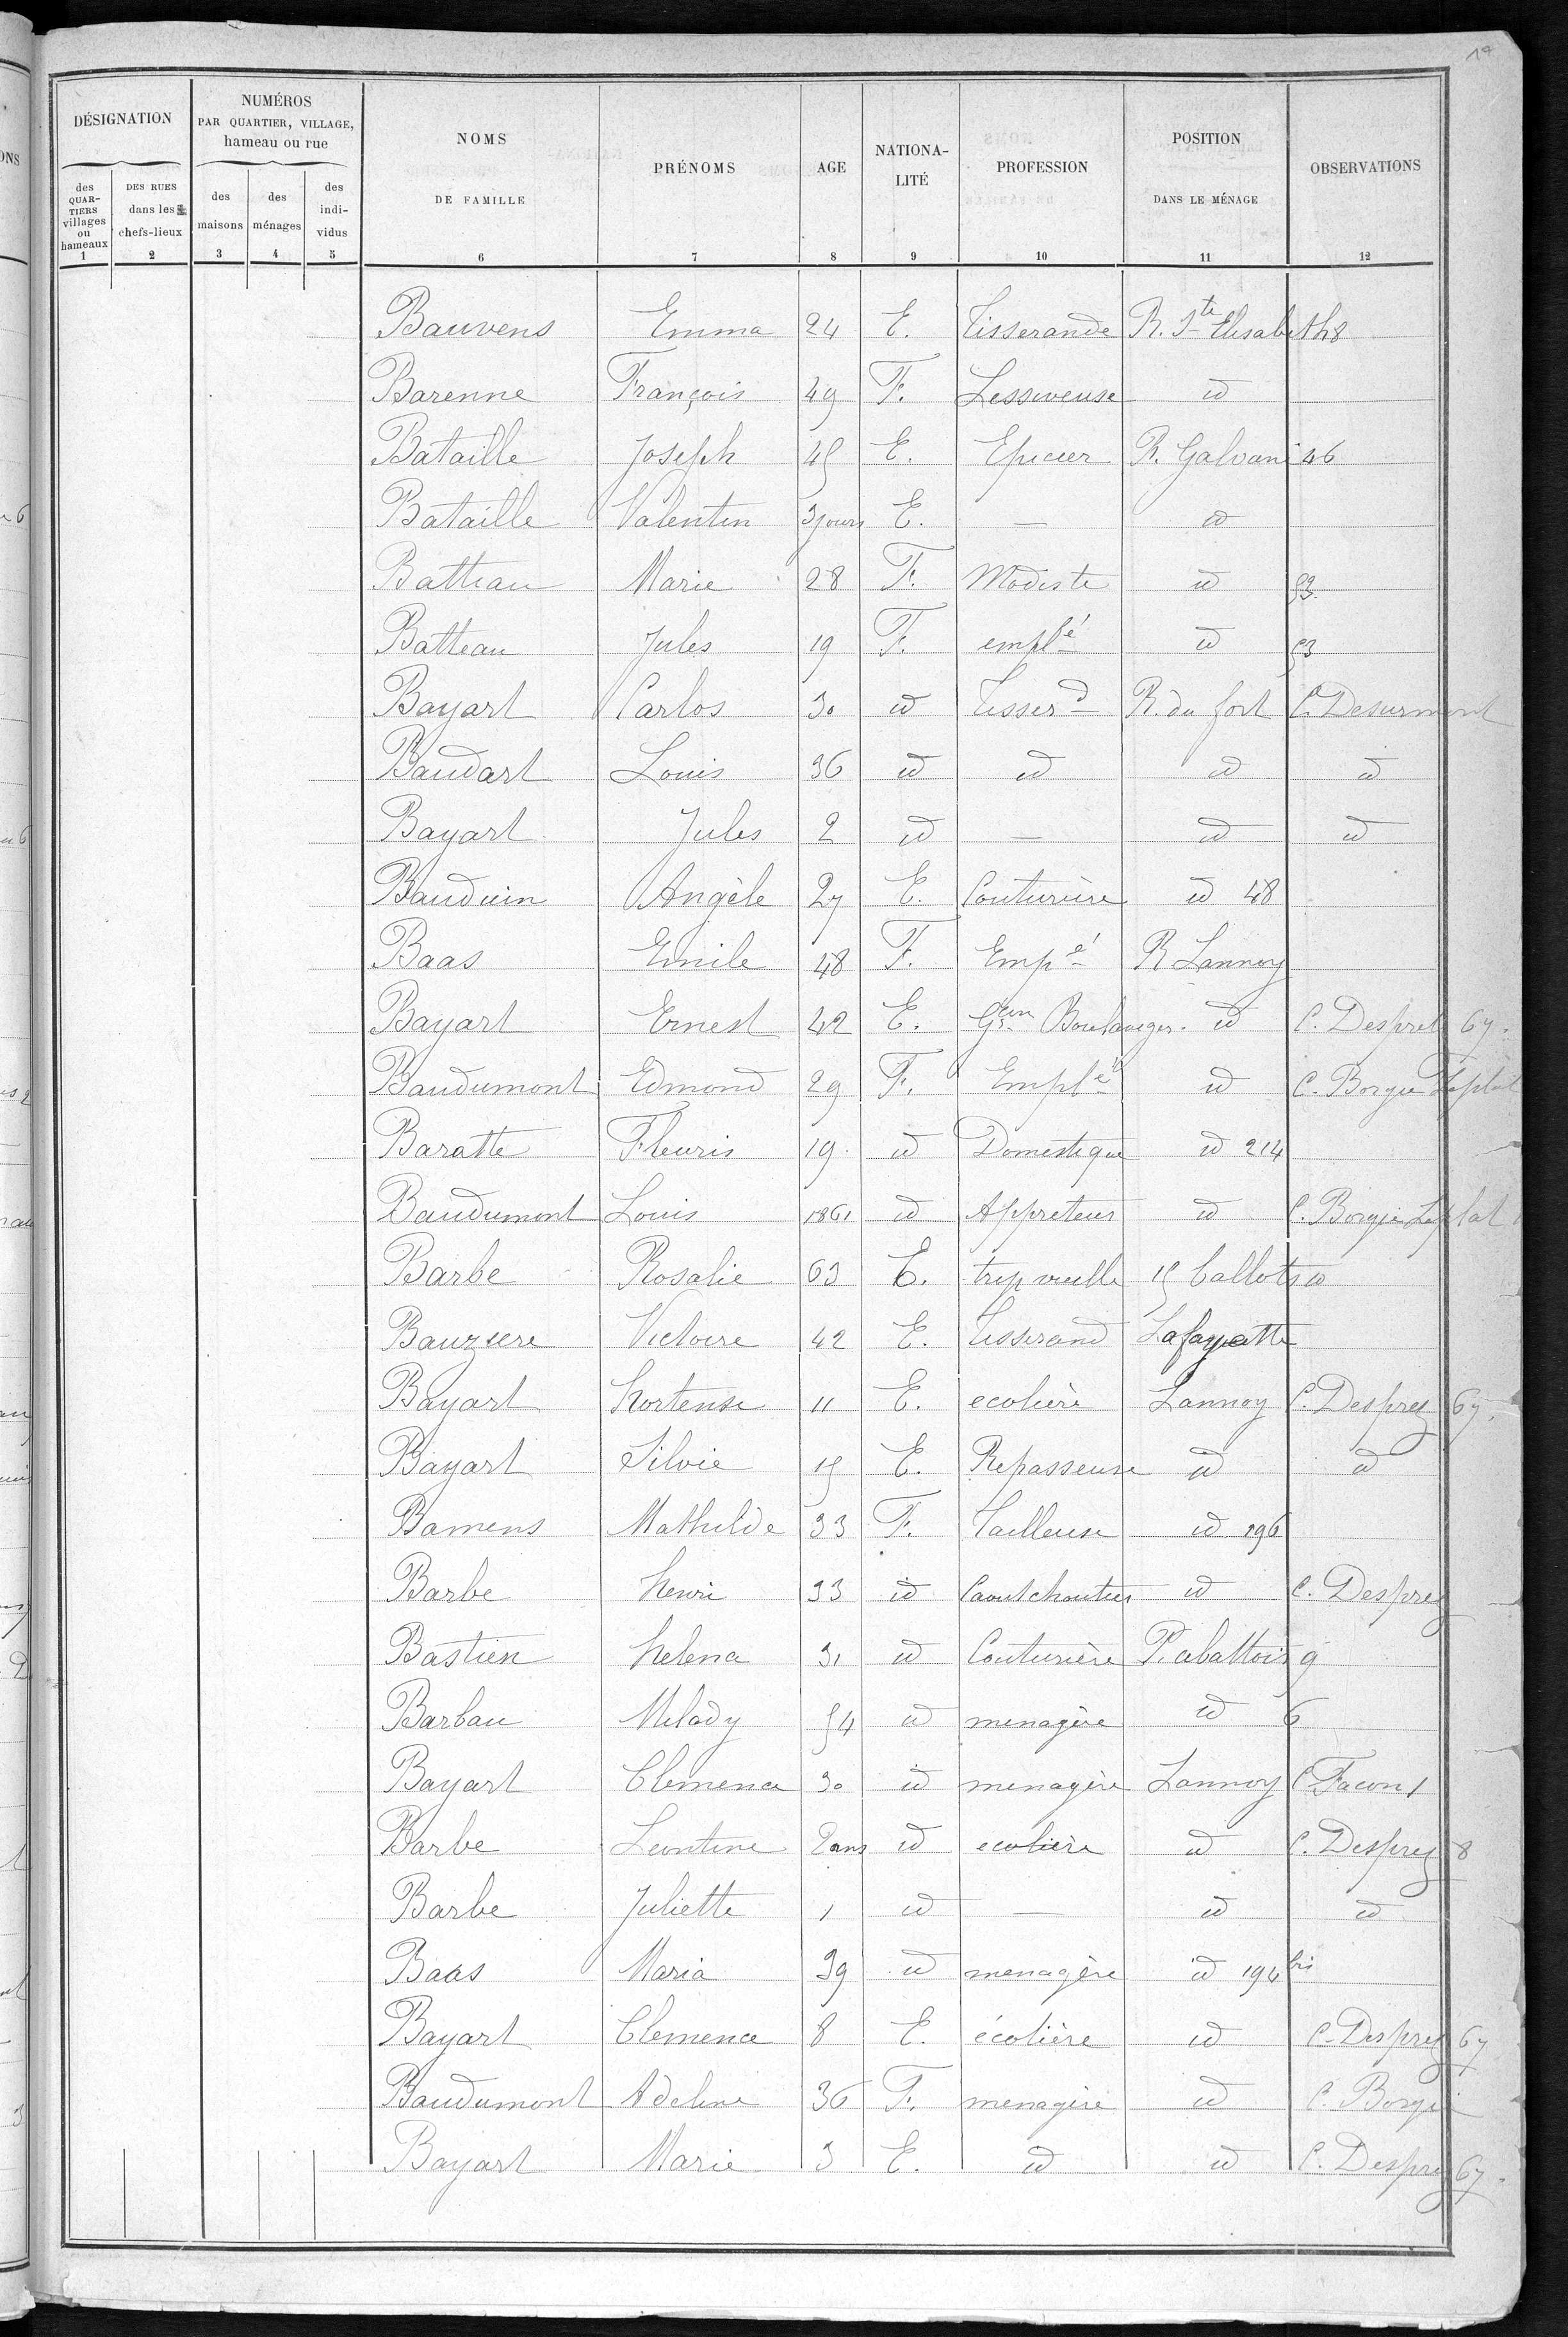 19
DÉSIGNATION
NUMÉROS
PAR QUARTIER, VILLAGE,
hameau ou rue
des QUAR-TIERS villages ou hameaux
DES RUES dans les chefs-lieux
des maisons
des ménages
des indi-vidus
NOMS DE FAMILLE
PRÉNOMS
AGE
NATIONA-LITÉ
PROFESSION
POSITION DANS LE MÉNAGE
OBSERVATIONS
1 2 3 4 5 6 7 8 9 10 11 12
Bauvens Emma 24 E. Tisserande R. Ste Elisabeth 8
Barenne François 49 F. Lessiveuse id
Bataille Joseph 45 E. Epicier R. Galvani 46
Bataille Valentin 3 jours E. — id
Batteau Marie 28 F. Modiste id 53
Batteau Jules 19 F. emplé id 53
Bayart Carlos 30 id Tisserd R. du fort C. Desurmont
Baudart Louis 36 id id id id
Bayart Jules 2 id — id id
Bauduin Angèle 27 E. Couturière id 48
Baas Emile 48 F. Empé R Lannoy
Bayart Ernest 42 E. Gçon Boulanger id C. Desprets 67.
Baudumont Edmond 29 F. Emplé id C. Borgie Leplat
Baratte Fleuris 19 id Domestique id 214
Baudumont Louis 1861 id Appreteur id C. Borgie Leplat
Barbe Rosalie 63 E. 15 Callots
Bauziere Victoire 42 E. Tisserand Lafayette
Bayart hortense 11 E. ecolière Lannoy C. Desprez 67.
Bayart Silvie 15 E. Repasseuse id id
Bamens Mathilde 33 F. Tailleuse id 196
Barbe henri 33 id Caoutchoutier id C. Desprez
Bastien helena 31 id Couturière P. abattoir 9
Barbau Melady 54 id menagère id 6
Bayart Clemence 30 id menagère Lannoy C. Facon 1
Barbe Leontine 2 ans id ecolière id C. Desprez 8
Barbe Juliette 1 id — id id
Baas Maria 39 id menagère id 194 bis
Bayart Clemence 8 E. écolière id C. Desprez 67
Baudumont Adeline 36 F. menagère id C. Borgie
Bayart Marie 3 E. id id C. Desprez 67.